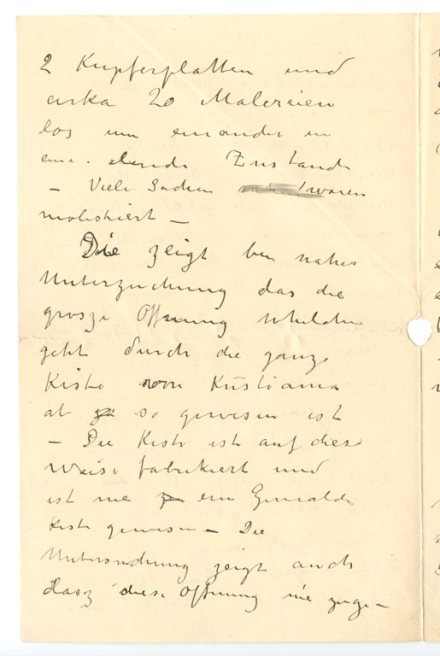 2 Kupferplatten und
cirka 20 Malereien
los um einander in
ein. elende Zustande
– Viele Sachen waren
molestiert –
Die zeigt bei nahes
Untersuchung das die
grosze Öffnung whelche
geht durch die ganze
Kiste von Kristiania
ab so gewesen ist
– Die Kiste ist auf diese
Weise fabrikiert und
ist nie ein Gemälde
Kiste gewesen – Die
Untersuchung zeigt auch
dasz diese Öffnung nie zuge–